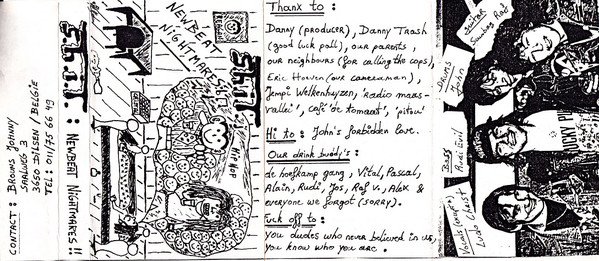 CONTACT : BROUNS JOHNNY
SANWEG 3
3650 DILSEN BELGIË
TEL : 011/75 66 49
Sh.i.T. : NEWBEAT NIGHTMARES !!
NEWBEAT
NIGHTMARES?
Sh.i.T
HIP HOP
Thanx to :
Danny (producer), Danny Trash
(good luck poll), our parents,
our neighbours (for calling the cops),
Eric Hoven (our cameraman),
Jempi Welkenhuyzen, 'radio maas-
vallei', café 'de tomaat', 'pitou'
Hi to : John's forbidden love.
Our drink buddy's :
de hoefkamp gang, Vital, Pascal,
Alain, Rudi, Jos, Raf V., Alex &
everyone we forgot (sorry).
Fuck off to :
you dudes who never believed in us,
you know who you are.
Guitar
Raf
Drums
John
Bass
Roel Evil
Vocals
Ludo Christ